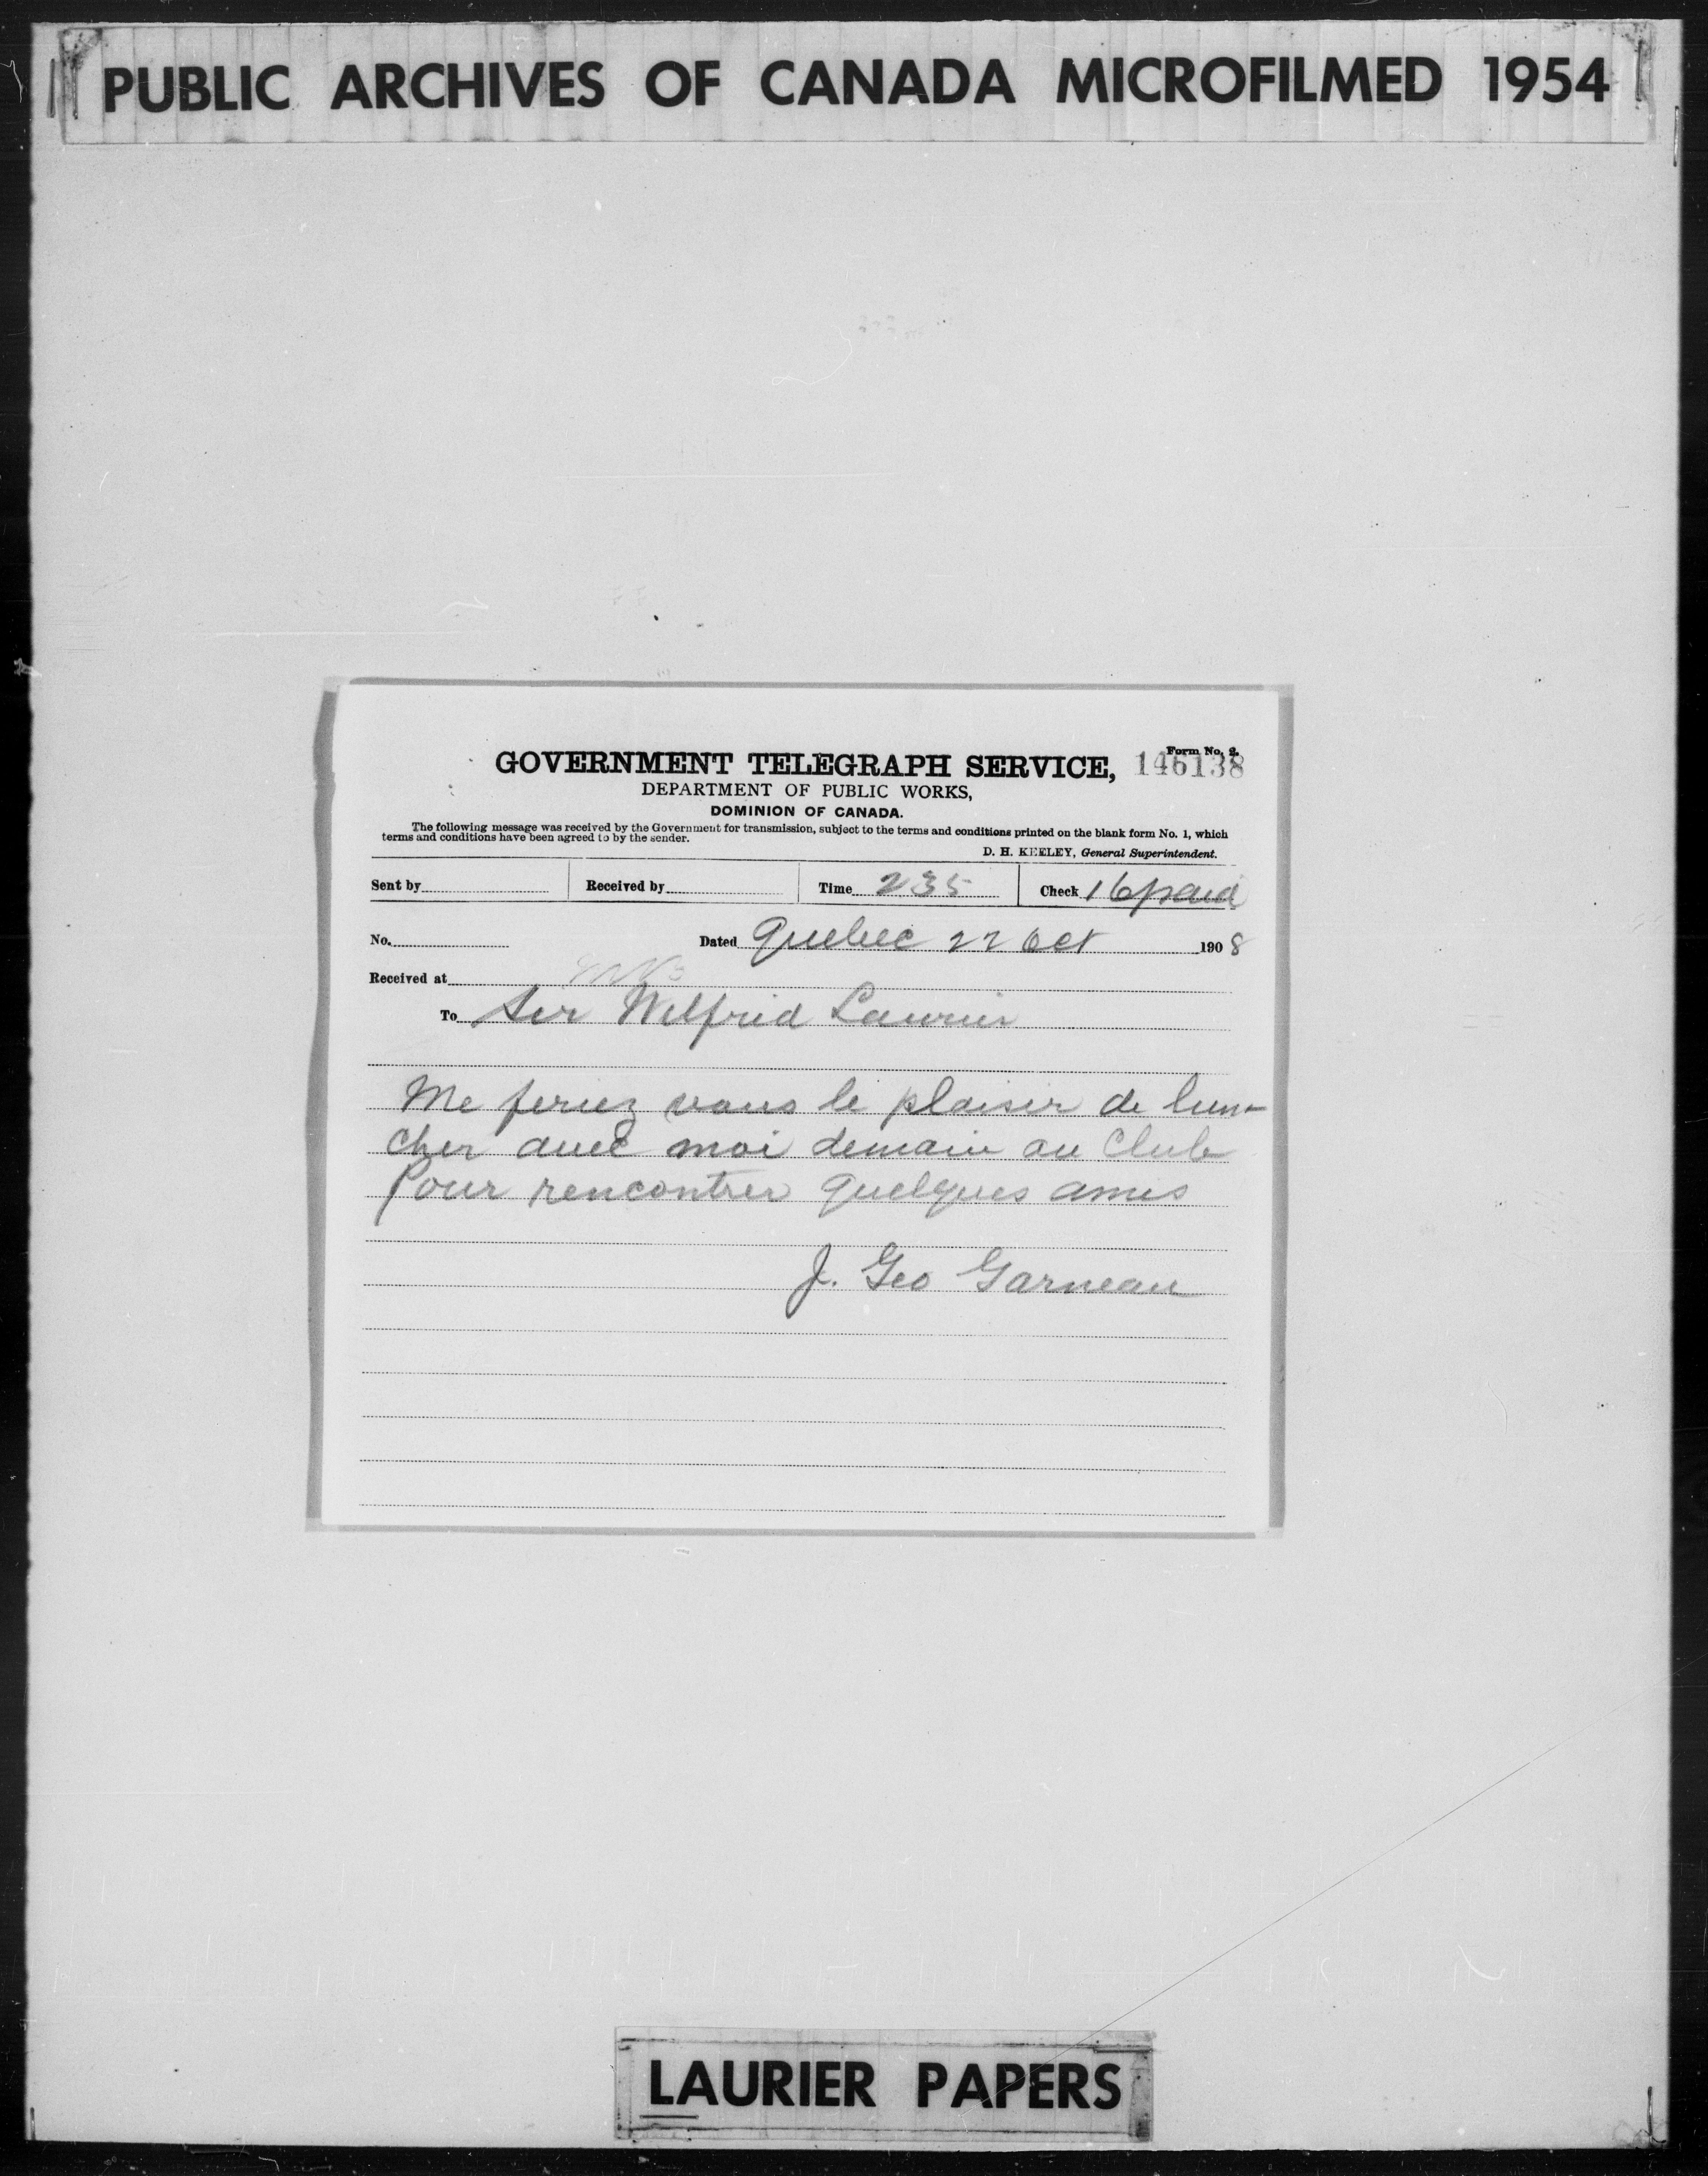 PUBLIC ARCHIVES OF CANADA MICROFILMED 1954
Form No. 2.
GOVERNMENT TELEGRAPH SERVICE, 146138
DEPARTMENT OF PUBLIC WORKS,
DOMINION OF CANADA.
The following message was received by the Government for transmission, subject to the terms and conditions printed on the blank form No. 1, which
terms and conditions have been agreed to by the sender.
D. H. KEELEY, General Superintendent.
Sent by Received by Time 235 Check 16 paid
No. Dated Quebec 22 Oct 1908
Received at
To Sir Wilfrid Laurier
Me feriez vous le plaisir de lun-
cher avec moi demain au Club
Pour rencontrer quelques amis
J. Geo Garneau
LAURIER PAPERS